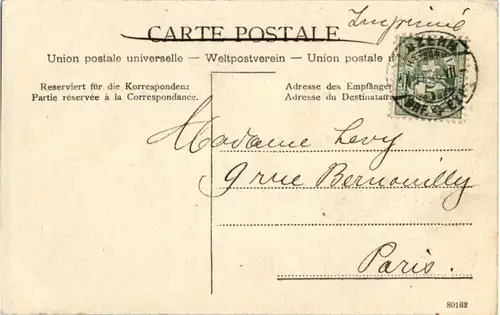 CARTE POSTALE
Imprimé
Union postale universelle – Weltpostverein – Union postale
Reserviert für die Korrespondenz
Partie réservée à la Correspondance.
Adresse des Empfänger
Adresse du Destinatair
Madame Levy
9 rue Bernouilly
Paris.
80162